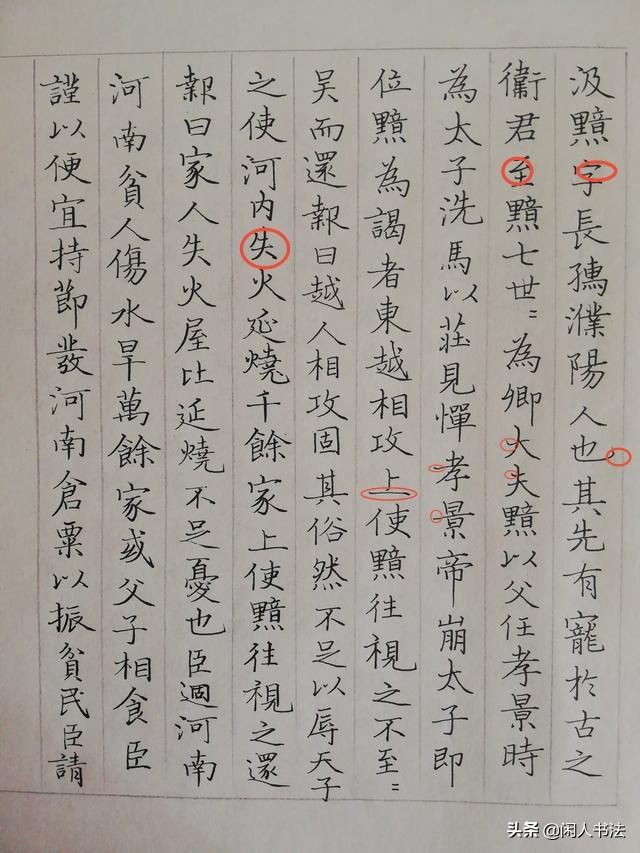 汲黯字長孺濮陽人也其先有寵於古之
衞君至黯七世〻為卿大夫黯以父任孝景時
為太子洗馬以莊見憚孝景帝崩太子即
位黯為謁者東越相攻上使黯往視之不至〻
吴而還報曰越人相攻固其俗然不足以辱天子
之使河内失火延燒千餘家上使黯往視之還
報曰家人失火屋比延燒不足憂也臣過河南
河南貧人傷水旱萬餘家或父子相食臣
謹以便宜持節發河南倉粟以振貧民臣請
头条 @闲人书法